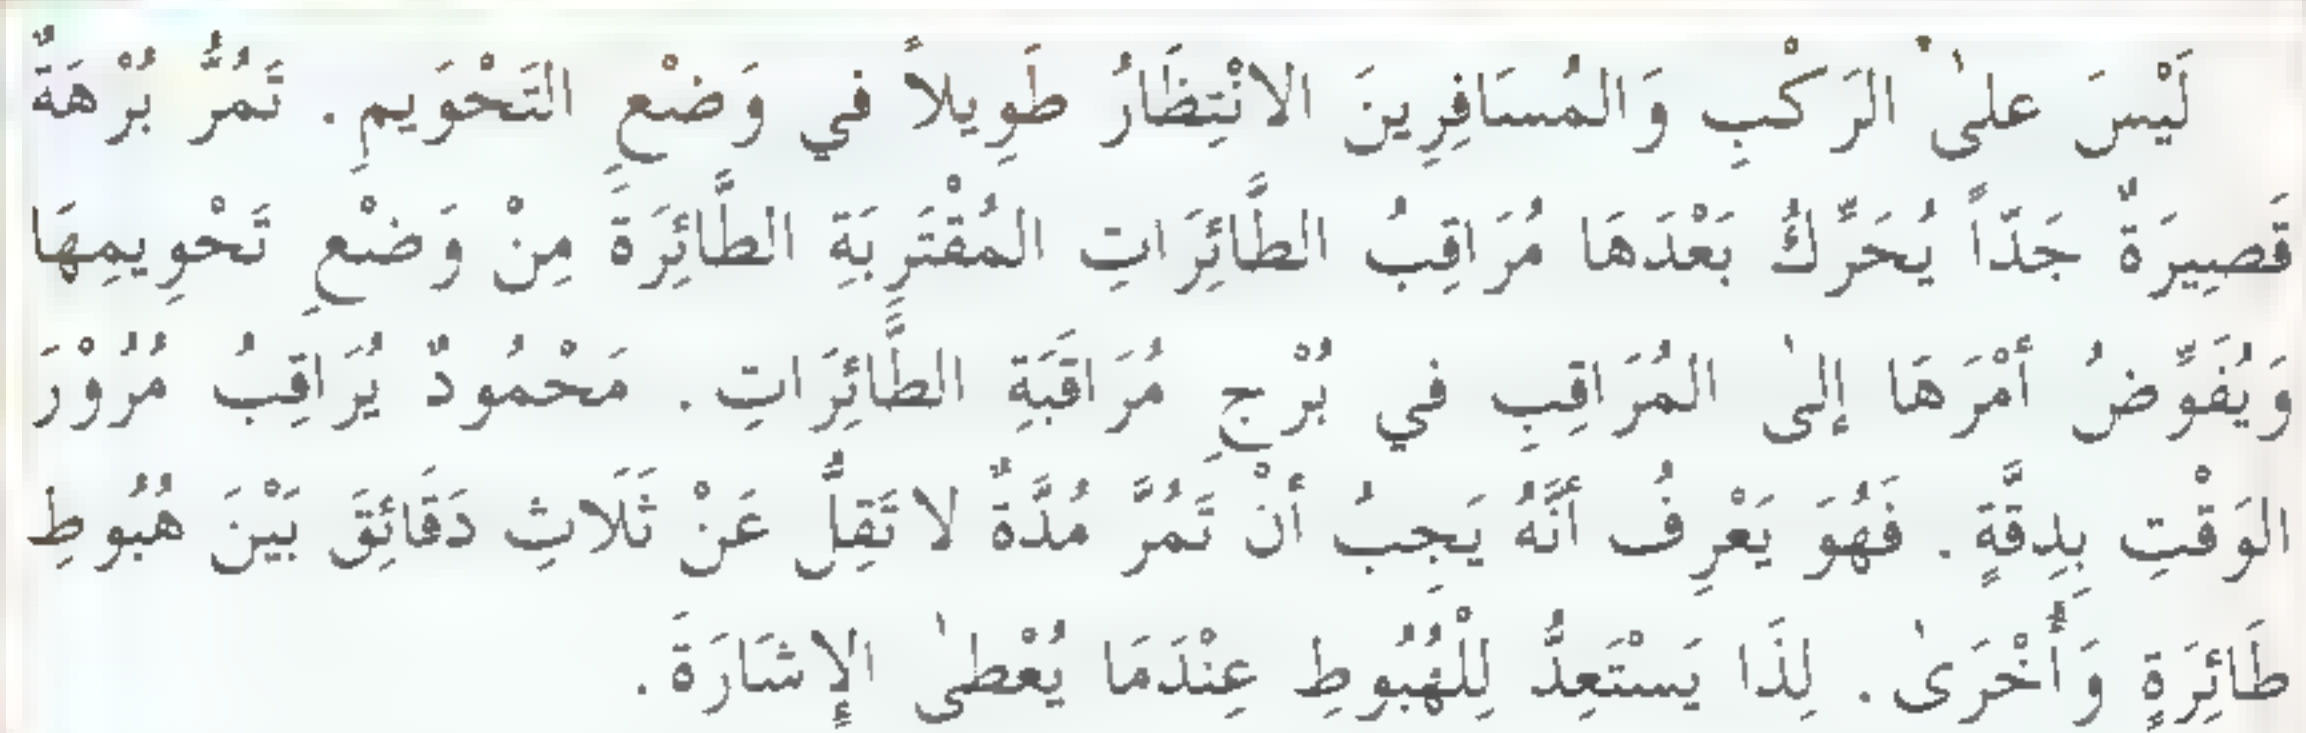 لَيْسَ علىٰ الرَكْبِ وَالمُسَافِرِينَ الانْتِظَارُ طَوِيلاً في وَضْعِ التَحْوَيمِ. تَمُرُّ بُرْهَةٌ
قَصِيرَةٌ جَدّاً يُحَرِّكُ بَعْدَهَا مُرَاقِبُ الطَّائِرَاتِ المُقْتَرِبَةِ الطَّائِرَةَ مِنْ وَضْعِ تَحْوِيمِهَا
وَيُفَوِّضُ أَمْرَهَا إلىٰ المُرَاقِبِ في بُرْجِ مُرَاقَبَةِ الطَّائِرَاتِ. مَحْمُودٌ يُرَاقِبُ مُرُوْرَ
الوَقْتِ بِدِقَّةٍ. فَهُوَ يَعْرِفُ أَنَّهُ يَجِبُ أَنْ تَمُرَّ مُدَّةٌ لا تَقِلُّ عَنْ ثَلَاثِ دَقَائِقَ بَيْنَ هُبُوطِ
طَائِرَةٍ وَأُخْرَىٰ. لِذَا يَسْتَعِدُّ لِلْهُبُوطِ عِنْدَمَا يُعْطىٰ الإِشَارَةَ.